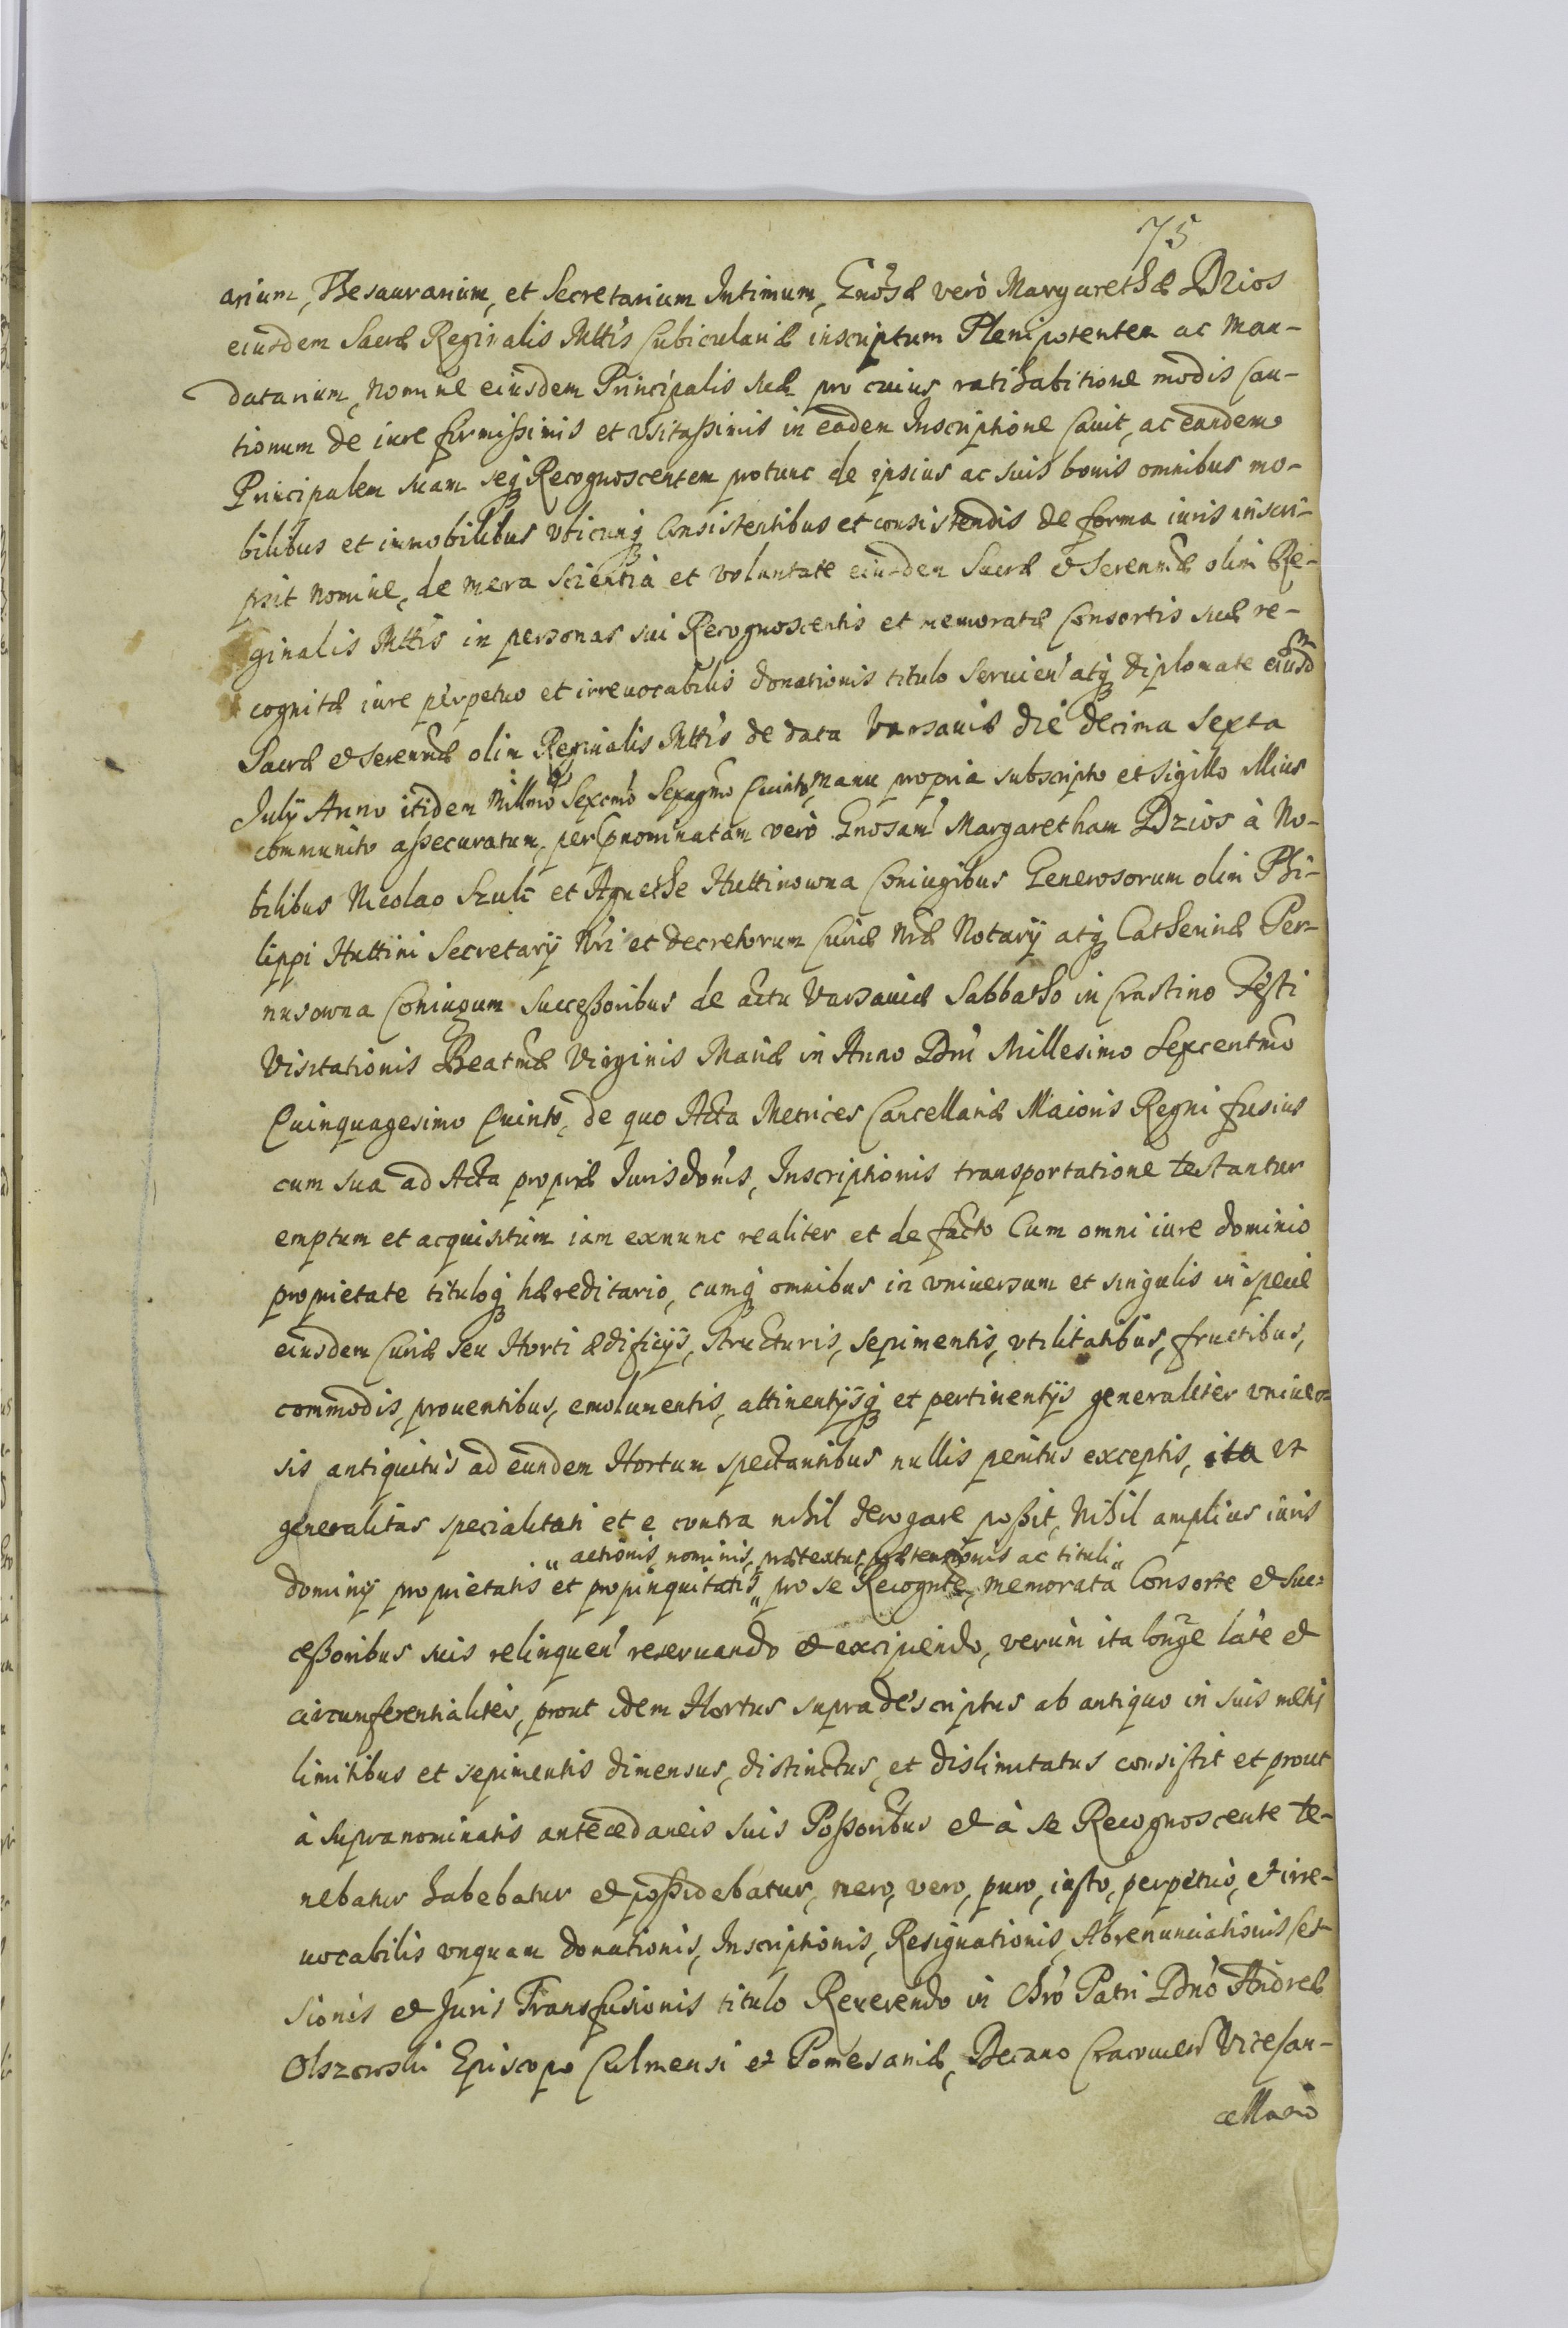 75
arium, Thesaurarium, et Secretarium Intimum, Gnosæ verò Margarethæ Dzios
eiusdem Sacræ Reginalis Mttis Cubiculariæ inscriptum Plenipotentem ac Man-
datarium, nomine eiusdem Principalis suæ pro cuius ratihabitione modis Cau-
tionum de iure firmissimis et vsitassimis in eadem Inscriptione cauit, ac eandem
Principalem suam seq Recognoscentem protunc de ipsius ac suis bonis omnibus mo-
bilibus et immobilibus vbicunq consistentibus et consistendis de forma iuris inscri-
psit nomine, de mera scientia et voluntate eiusdem Sacræ & Serenmæ olim Re-
ginalis Mttis in personas sui Recognoscentis et memoratæ Consortis suæ re-
cognitæ iure perpetuo et irreuocabilis donationis titulo seruien atq diplomate eiusdm
Sacræ & Serenmæ olim Reginalis Mttis de data Varsauiæ die decima sexta
Julij Anno itidem Millmo Sexcmo Sexagmo Quinto, manu propria subscripto et sigillo illius
communito assecuratum, per prnominatam verò Gnosam Margaretham Dzios à No-
bilibus Nicolao Szulc et Agnethe Huttinowna Coniugibus Generosorum olim Phi-
lippi Huttini Secretarij Nri et decretorum Curiæ Nræ Notarij atq Catherinæ Per-
nusowna Coniugum Successoribus de actu Varsauiæ Sabbatho in Crastino Festi
Visitationis Beatmæ Virginis Mariæ in Anno Dni Millesimo Sexcentmo
Quinquagesimo Quinto, de quo Acta Metrices Cancellariæ Maioris Regni fusius
cum sua ad Acta propriæ Jurisdonis, Inscriptionis transportatione testantur
emptum et acquisitum iam exnunc realiter et de facto Cum omni iure dominio
proprietate tituloq hæreditario, cumq omnibus in vniuersum et singulis in specie
eiusdem Curiæ seu Horti ædificijs, structuris, sepimentis, vtilitatibus, fructibus,
commodis, prouentibus, emolumentis, attinentijsq et pertinentijs generaliter vniuer=
sis antiquitus ad eundem Hortum spectantibus nullis penitus exceptis, ita vt
generalitas specialitati et e contra nihil derogare possit, Nihil amplius iuris
" actionis, nominis, prætextus, prætensionis ac tituli "
dominij proprietatis et propinquitatis " pro se Recognte, memorata Consorte & Suc=
cessoribus suis relinquen reseruando & excipiendo, verùm ita longe late &
circumferentialiter, prout idem Hortus supradescriptus ab antiquo in suis metis
limitibus et sepimentis dimensus, distinctus, et dislimitatus consistit et prout
à supranominatis antecedaneis suis Possoribus & à se Recognoscente te-
nebatur habebatur & possidebatur, mero, vero, puro, iusto, perpetuò, et irre-
uocabilis vnquam donationis, Inscriptionis, Resignationis, Abrenunciationis Ces-
sionis & Juris Transfusionis titulo Reverendo in Chro Patri Dno Andreæ
Olszowski Episcopo Culmensi et Pomesaniæ, Decano Cracouien Vicecan-
cellario